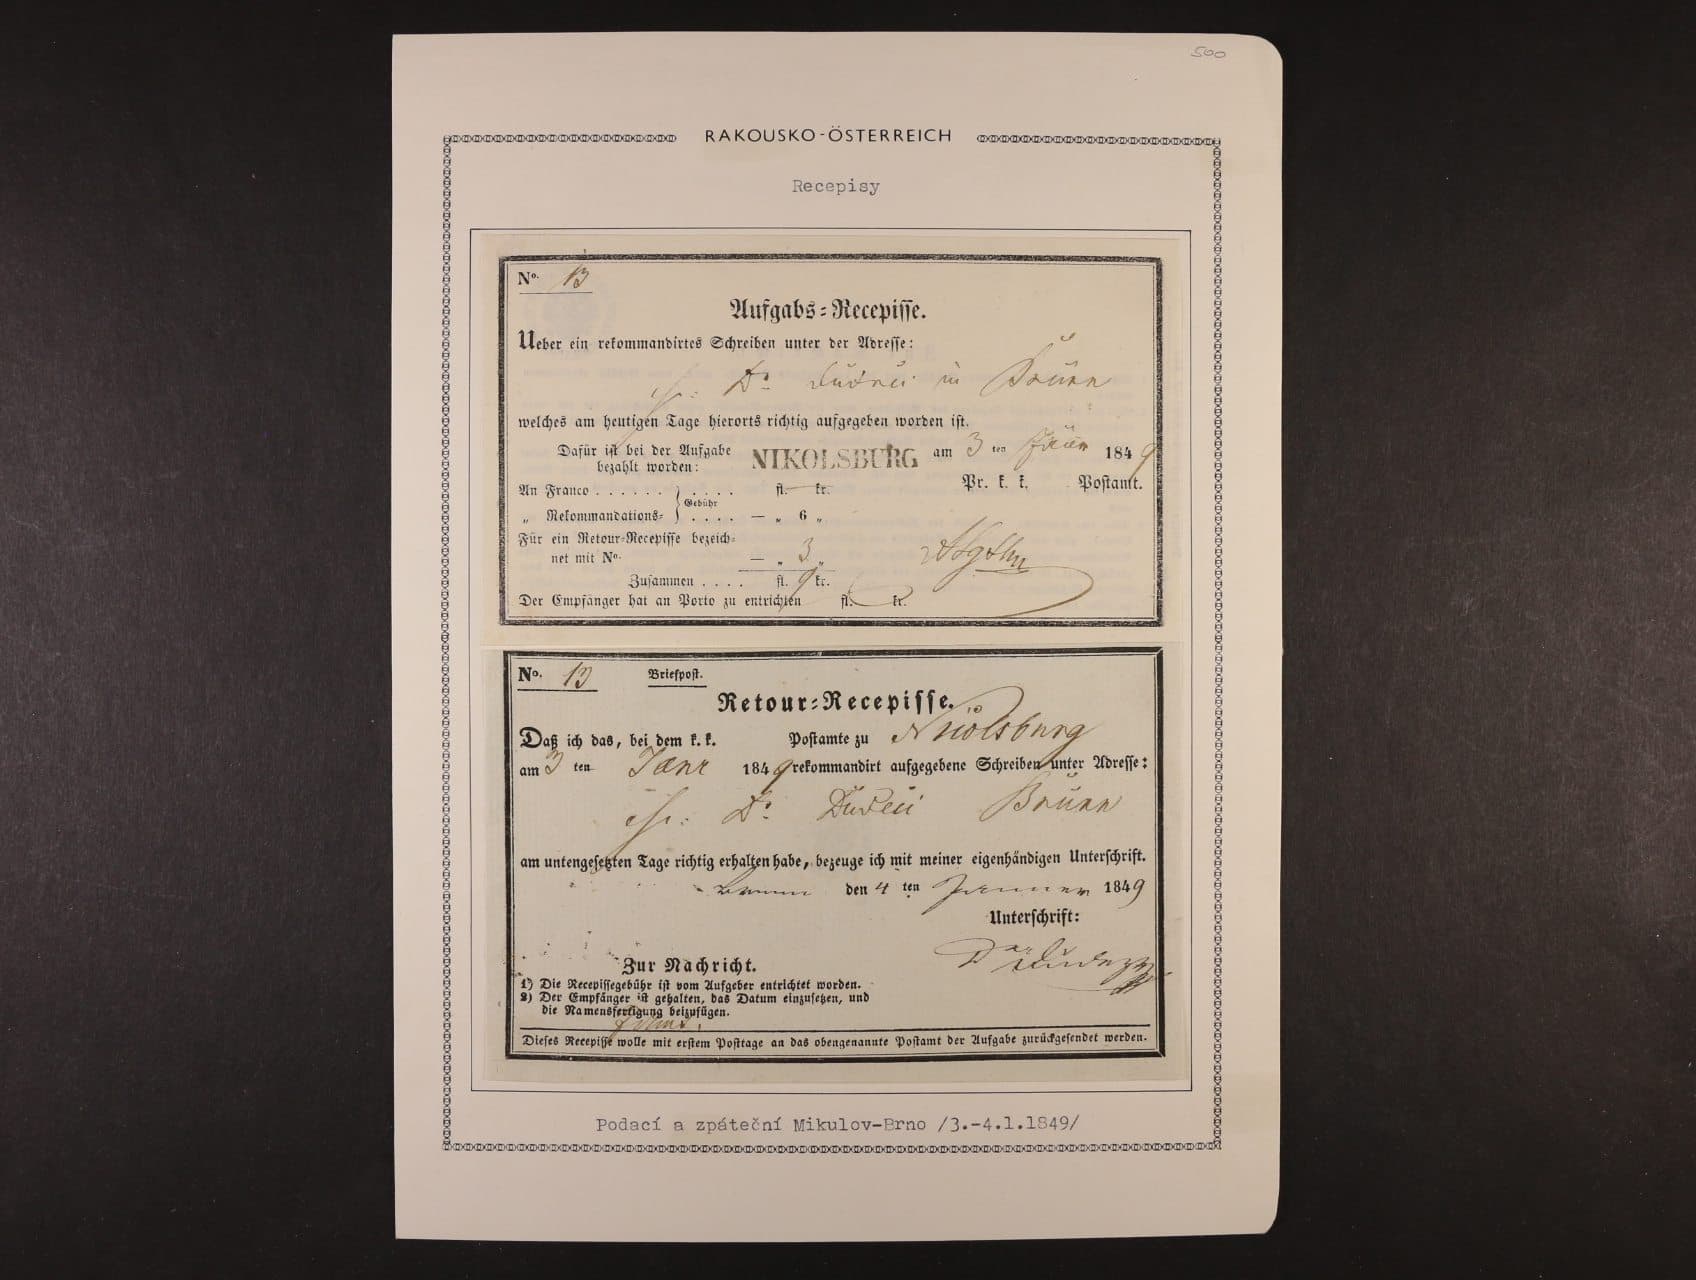 500
RAKOUSKO-ÖSTERREICH
Recepisy
No. 13
Aufgabs=Recepisse.
Ueber ein rekommandirtes Schreiben unter der Adresse:
Dr. in Brünn
welches am heutigen Tage hierorts richtig aufgegeben worden ist.
Dafür ist bei der Aufgabe bezahlt worden:
NIKOLSBURG am 3 ten Jäner 1849
Pr. k. k. Postamt.
An Franco . . . . . . } Gebühr . . . . fl. — kr.
„ Rekommandations= . . . . — „ 6 „
Für ein Retour=Recepisse bezeich=
net mit No. — „ 3 „
Zusammen . . . . fl. 9 kr.
Der Empfänger hat an Porto zu entrichten fl. kr.
No. 13 Briefpost.
Retour=Recepisse.
Daß ich das, bei dem k. k. Postamte zu Nikolsburg
am 3 ten Jänr 1849 rekommandirt aufgegebene Schreiben unter Adresse:
Dr. Brünn
am untengesetzten Tage richtig erhalten habe, bezeuge ich mit meiner eigenhändigen Unterschrift.
Brünn den 4 ten Jänner 1849
Unterschrift:
Zur Nachricht.
1) Die Recepissegebühr ist vom Aufgeber entrichtet worden.
2) Der Empfänger ist gehalten, das Datum einzusetzen, und
die Namensfertigung beizufügen.
Dieses Recepisse wolle mit erstem Posttage an das obengenannte Postamt der Aufgabe zurückgesendet werden.
Podací a zpáteční Mikulov-Brno /3.-4.1.1849/